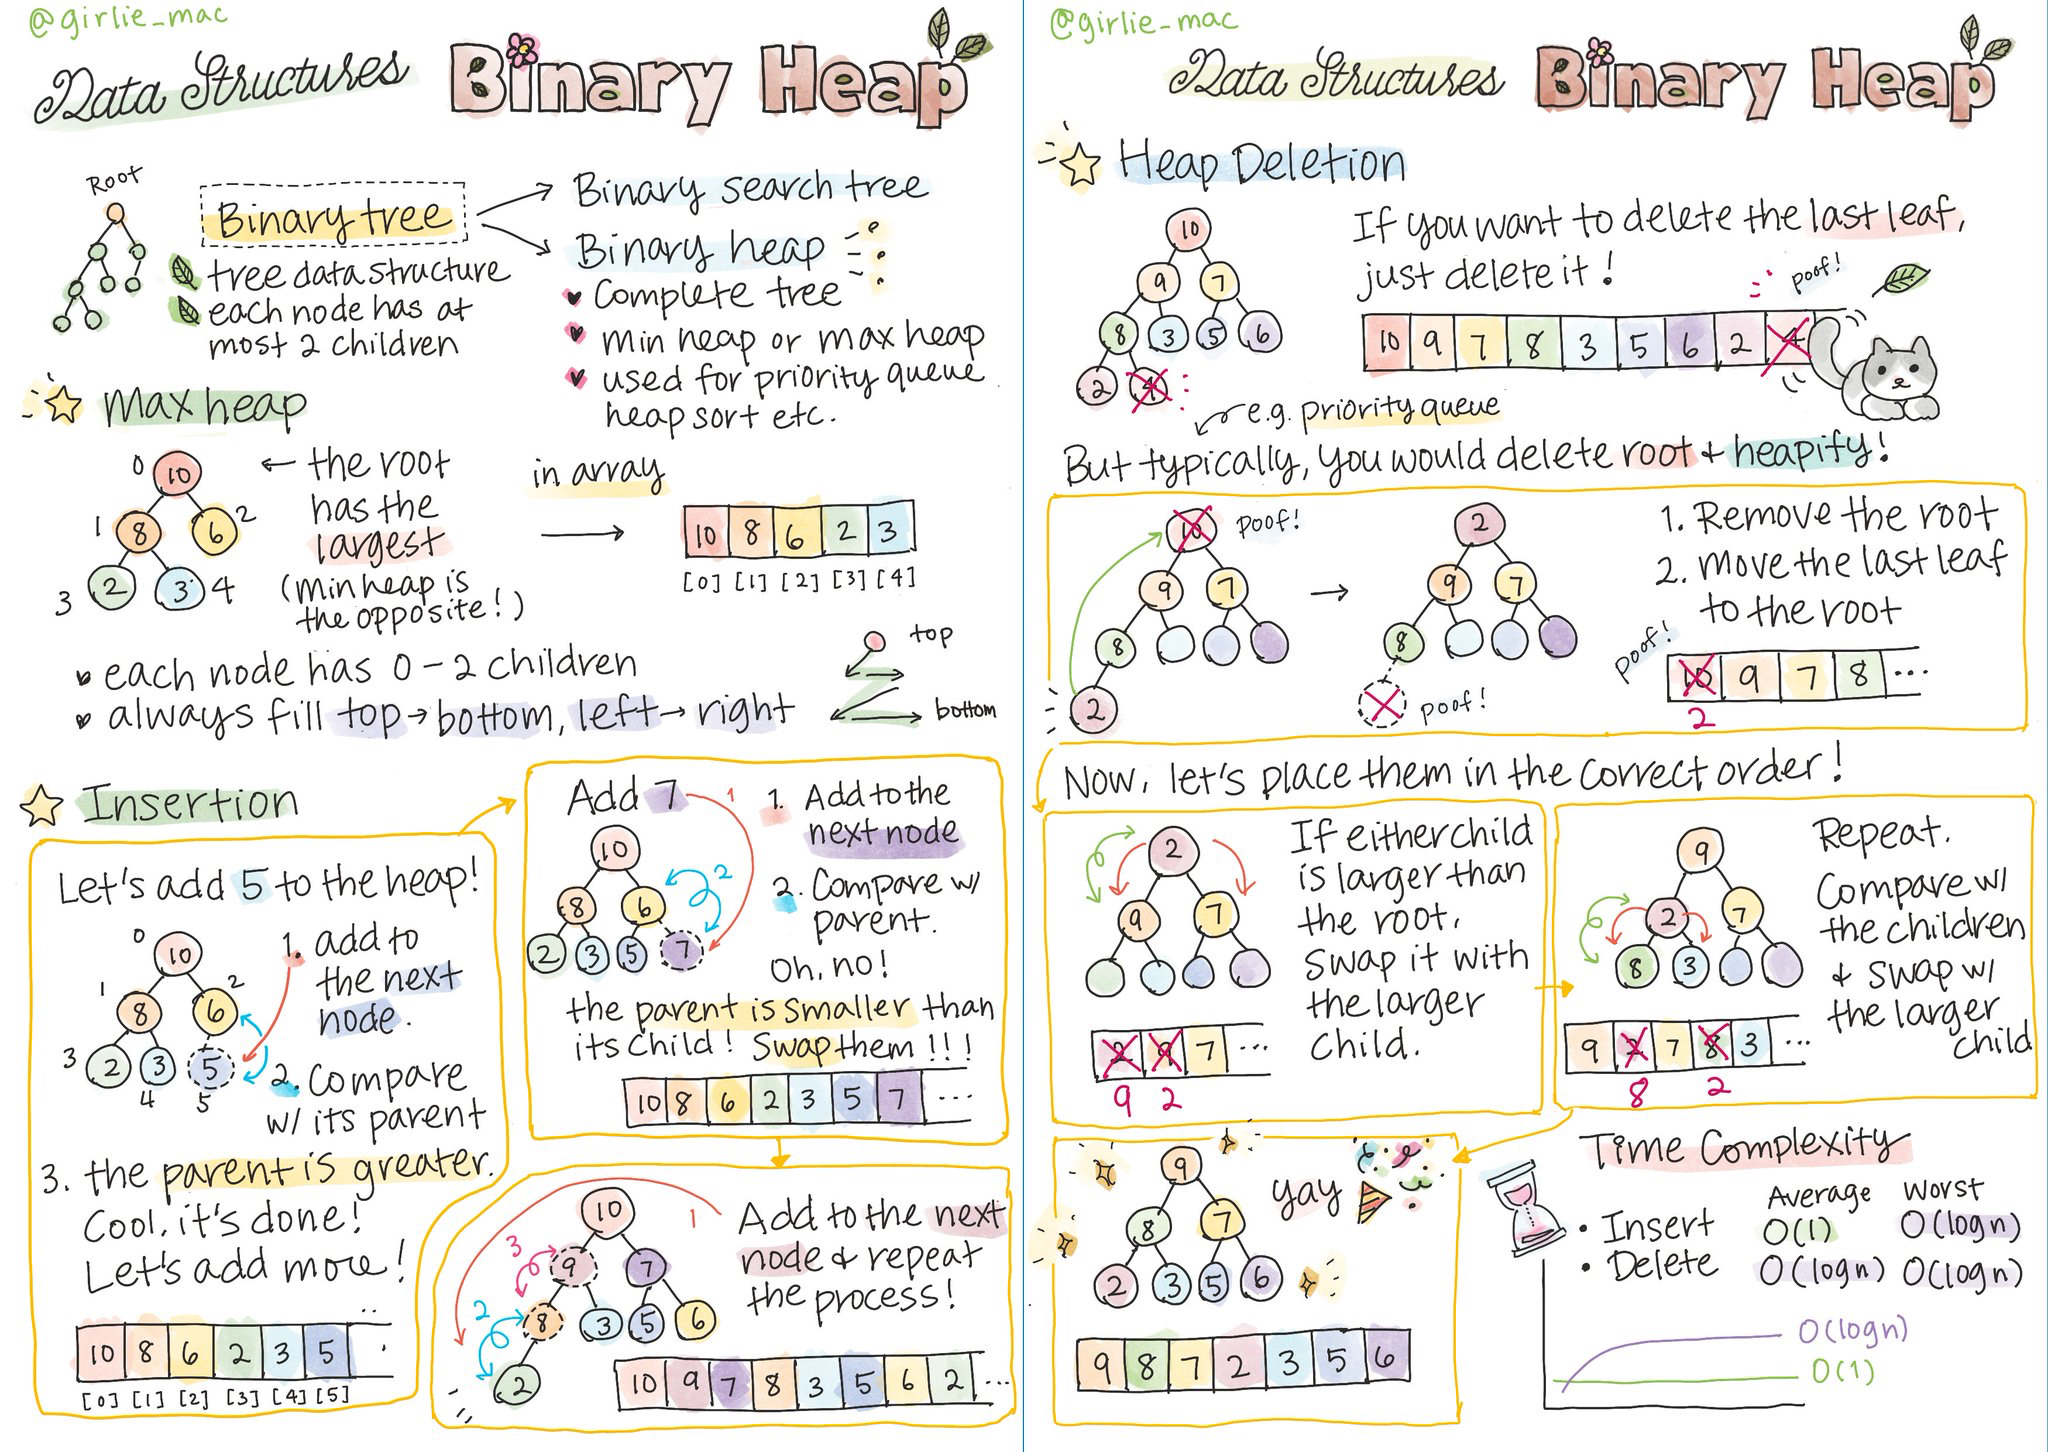 @girlie_mac
Data Structures Binary Heap
Root
Binary tree
tree data structure
each node has at
most 2 children
Binary search tree
Binary heap
Complete tree
min heap or max heap
used for priority queue
heap sort etc.
max heap
0 10
1 8 6 2
3 2 3 4
← the root
has the
largest
(min heap is
the opposite!)
in array
10 8 6 2 3
[0] [1] [2] [3] [4]
each node has 0 - 2 children
always fill top → bottom, left → right
top
bottom
Insertion
Let's add 5 to the heap!
0
10
1 2
8 6
3 2 3 5
4 5
1. add to
the next
node.
2. Compare
w/ its parent
3. the parent is greater.
Cool, it's done!
Let's add more!
10 8 6 2 3 5
[0] [1] [2] [3] [4] [5]
Add 7 1
10
8 6 2
2 3 5 7
1. Add to the
next node
2. Compare w/
parent.
Oh, no!
the parent is smaller than
its child! Swap them!!!
10 8 6 2 3 5 7 ...
10 1
3 9 7
2 8 3 5 6
2
Add to the next
node & repeat
the process!
10 9 7 8 3 5 6 2 ...
@girlie_mac
Data Structures Binary Heap
Heap Deletion
10
9 7
8 3 5 6
2 4
If you want to delete the last leaf,
just delete it!
poof!
10 9 7 8 3 5 6 2 4
e.g. priority queue
But typically, you would delete root & heapify!
10 poof!
9 7
8
2
2
9 7
8
poof!
1. Remove the root
2. move the last leaf
to the root
poof!
10 9 7 8 ...
2
Now, let's place them in the correct order!
2
9 7
If either child
is larger than
the root,
swap it with
the larger
child.
2 9 7 ...
9 2
9
2 7
8 3
Repeat.
Compare w/
the children
& swap w/
the larger
child
9 2 7 8 3 ...
8 2
9
8 7
2 3 5 6
yay
9 8 7 2 3 5 6
Time Complexity
Average Worst
• Insert O(1) O(log n)
• Delete O(log n) O(log n)
O(log n)
O(1)